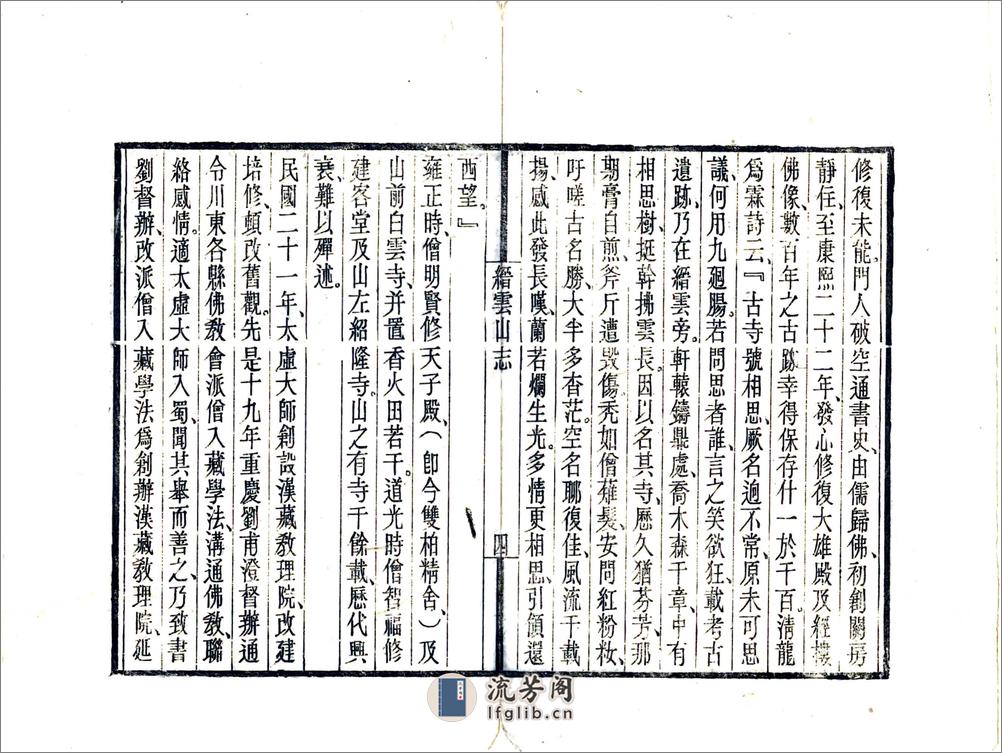 修復未能。門人破空通書史、由儒歸佛、初創關房
靜住、至康熙二十二年、發心修復大雄殿及經樓
佛像、數百年之古跡、幸得保存什一於千百。清龍
爲霖詩云、『古寺號相思、厥名逈不常、原未可思
議、何用九廻腸。若問思者誰、言之笑欲狂、載考古
遺跡、乃在縉雲旁。軒轅鑄鼎處、喬木森千章、中有
相思樹、挺幹拂雲長。因以名其寺、歷久猶芬芳、那
期膏自煎、斧斤遭毀傷。禿如僧薙髮、安問紅粉妝、
吁嗟古名勝、大半多杳茫。空名聊復佳、風流千載
揚、感此發長嘆、蘭若爛生光。多情更相思、引領還
縉雲山志
四
西望。』
雍正時、僧明賢修天子殿、(卽今雙柏精舍、)及
山前白雲寺、幷置香火田若干。道光時、僧智福修
建客堂及山左紹隆寺。山之有寺千餘載、歷代興
衰、難以殫述。
民國二十一年、太虛大師創設漢藏教理院、改建
培修、頓改舊觀。先是十九年、重慶劉甫澄督辦通
令川東各縣佛教會派僧入藏學法、溝通佛教、聯
絡感情。適太虛大師入蜀、聞其舉而善之、乃致書
劉督辦、改派僧入藏學法爲創辦漢藏教理院、延
流芳阁
lfglib.cn